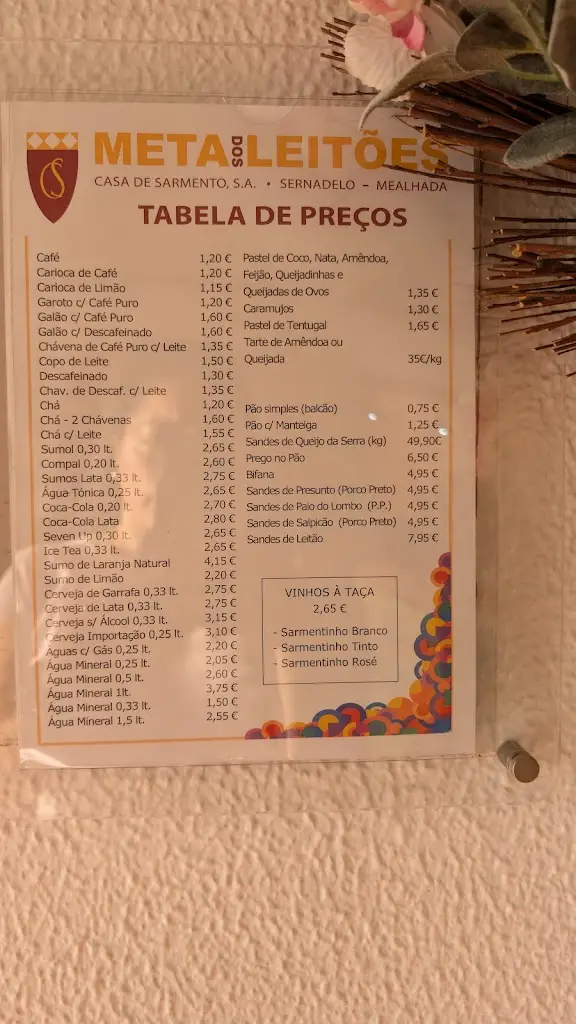 META DOS LEITÕES
CASA DE SARMENTO, S.A. • SERNADELO - MEALHADA
TABELA DE PREÇOS
Café 1,20 €
Carioca de Café 1,20 €
Carioca de Limão 1,15 €
Garoto c/ Café Puro 1,20 €
Galão c/ Café Puro 1,60 €
Galão c/ Descafeinado 1,60 €
Chávena de Café Puro c/ Leite 1,35 €
Copo de Leite 1,50 €
Descafeinado 1,30 €
Chav. de Descaf. c/ Leite 1,35 €
Chá 1,20 €
Chá - 2 Chávenas 1,60 €
Chá c/ Leite 1,55 €
Sumol 0,30 lt. 2,65 €
Compal 0,20 lt. 2,60 €
Sumos Lata 0,33 lt. 2,75 €
Água Tónica 0,25 lt. 2,65 €
Coca-Cola 0,20 lt. 2,70 €
Coca-Cola Lata 2,80 €
Seven Up 0,30 lt. 2,65 €
Ice Tea 0,33 lt. 2,65 €
Sumo de Laranja Natural 4,15 €
Sumo de Limão 2,20 €
Cerveja de Garrafa 0,33 lt. 2,75 €
Cerveja de Lata 0,33 lt. 2,75 €
Cerveja s/ Álcool 0,33 lt. 3,15 €
Cerveja Importação 0,25 lt. 3,10 €
Águas c/ Gás 0,25 lt. 2,20 €
Água Mineral 0,25 lt. 2,05 €
Água Mineral 0,5 lt. 2,60 €
Água Mineral 1lt. 3,75 €
Água Mineral 0,33 lt. 1,50 €
Água Mineral 1,5 lt. 2,55 €
Pastel de Coco, Nata, Amêndoa,
Feijão, Queijadinhas e
Queijadas de Ovos 1,35 €
Caramujos 1,30 €
Pastel de Tentugal 1,65 €
Tarte de Amêndoa ou
Queijada 35€/kg
Pão simples (balcão) 0,75 €
Pão c/ Manteiga 1,25 €
Sandes de Queijo da Serra (kg) 49,90€
Prego no Pão 6,50 €
Bifana 4,95 €
Sandes de Presunto (Porco Preto) 4,95 €
Sandes de Paio do Lombo (P.P.) 4,95 €
Sandes de Salpicão (Porco Preto) 4,95 €
Sandes de Leitão 7,95 €
VINHOS À TAÇA
2,65 €
- Sarmentinho Branco
- Sarmentinho Tinto
- Sarmentinho Rosé